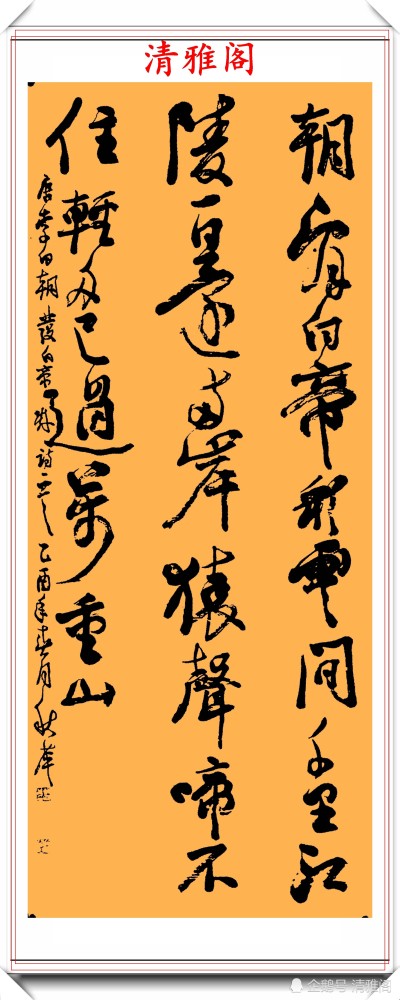 清雅阁
朝辭白帝彩雲間千里江
陵一日還兩岸猿聲啼不
住輕舟已過萬重山
唐李白朝發白帝城詩一首乙酉年春月秋
企鹅号 清雅阁